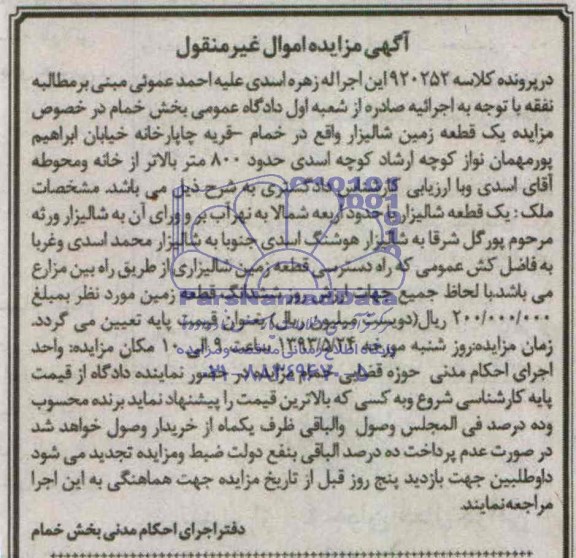 آگهی مزایده اموال غیرمنقول
درپرونده کلاسه ۹۲۰۲۵۲ این اجرا له زهره اسدی علیه احمد عموئی مبنی بر مطالبه
نفقه با توجه به اجرائیه صادره از شعبه اول دادگاه عمومی بخش خمام در خصوص
مزایده یک قطعه زمین شالیزار واقع در خمام -قریه چاپارخانه خیابان ابراهیم
پورمهمان نواز کوچه ارشاد کوچه اسدی حدود ۸۰۰ متر بالاتر از خانه ومحوطه
آقای اسدی وبا ارزیابی کارشناس دادگستری به شرح ذیل می باشد. مشخصات
ملک : یک قطعه شالیزار با حدود اربعه شمالا به نهرآب بر و ورای آن به شالیزار ورثه
مرحوم پورگل شرقا به شالیزار هوشنگ اسدی جنوبا به شالیزار محمد اسدی وغربا
به فاضل کش عمومی که راه دسترسی قطعه زمین شالیزاری از طریق راه بین مزارع
می باشد.با لحاظ جمیع جهات ارزش روز ششدانگ قطعه زمین مورد نظر بمبلغ
۲۰۰/۰۰۰/۰۰۰ ریال(دویست میلیون ریال) بعنوان قیمت پایه تعیین می گردد.
زمان مزایده:روز شنبه مورخه ۱۳۹۳/۵/۲۴ ساعت ۹ الی ۱۰ مکان مزایده: واحد
اجرای احکام مدنی حوزه قضایی خمام مزایده در حضور نماینده دادگاه از قیمت
پایه کارشناسی شروع وبه کسی که بالاترین قیمت را پیشنهاد نماید برنده محسوب
وده درصد فی المجلس وصول والباقی ظرف یکماه از خریدار وصول خواهد شد
در صورت عدم پرداخت ده درصد الباقی بنفع دولت ضبط ومزایده تجدید می شود
داوطلبین جهت بازدید پنج روز قبل از تاریخ مزایده جهت هماهنگی به این اجرا
مراجعه نمایند.
دفتر اجرای احکام مدنی بخش خمام
ParsNamadData